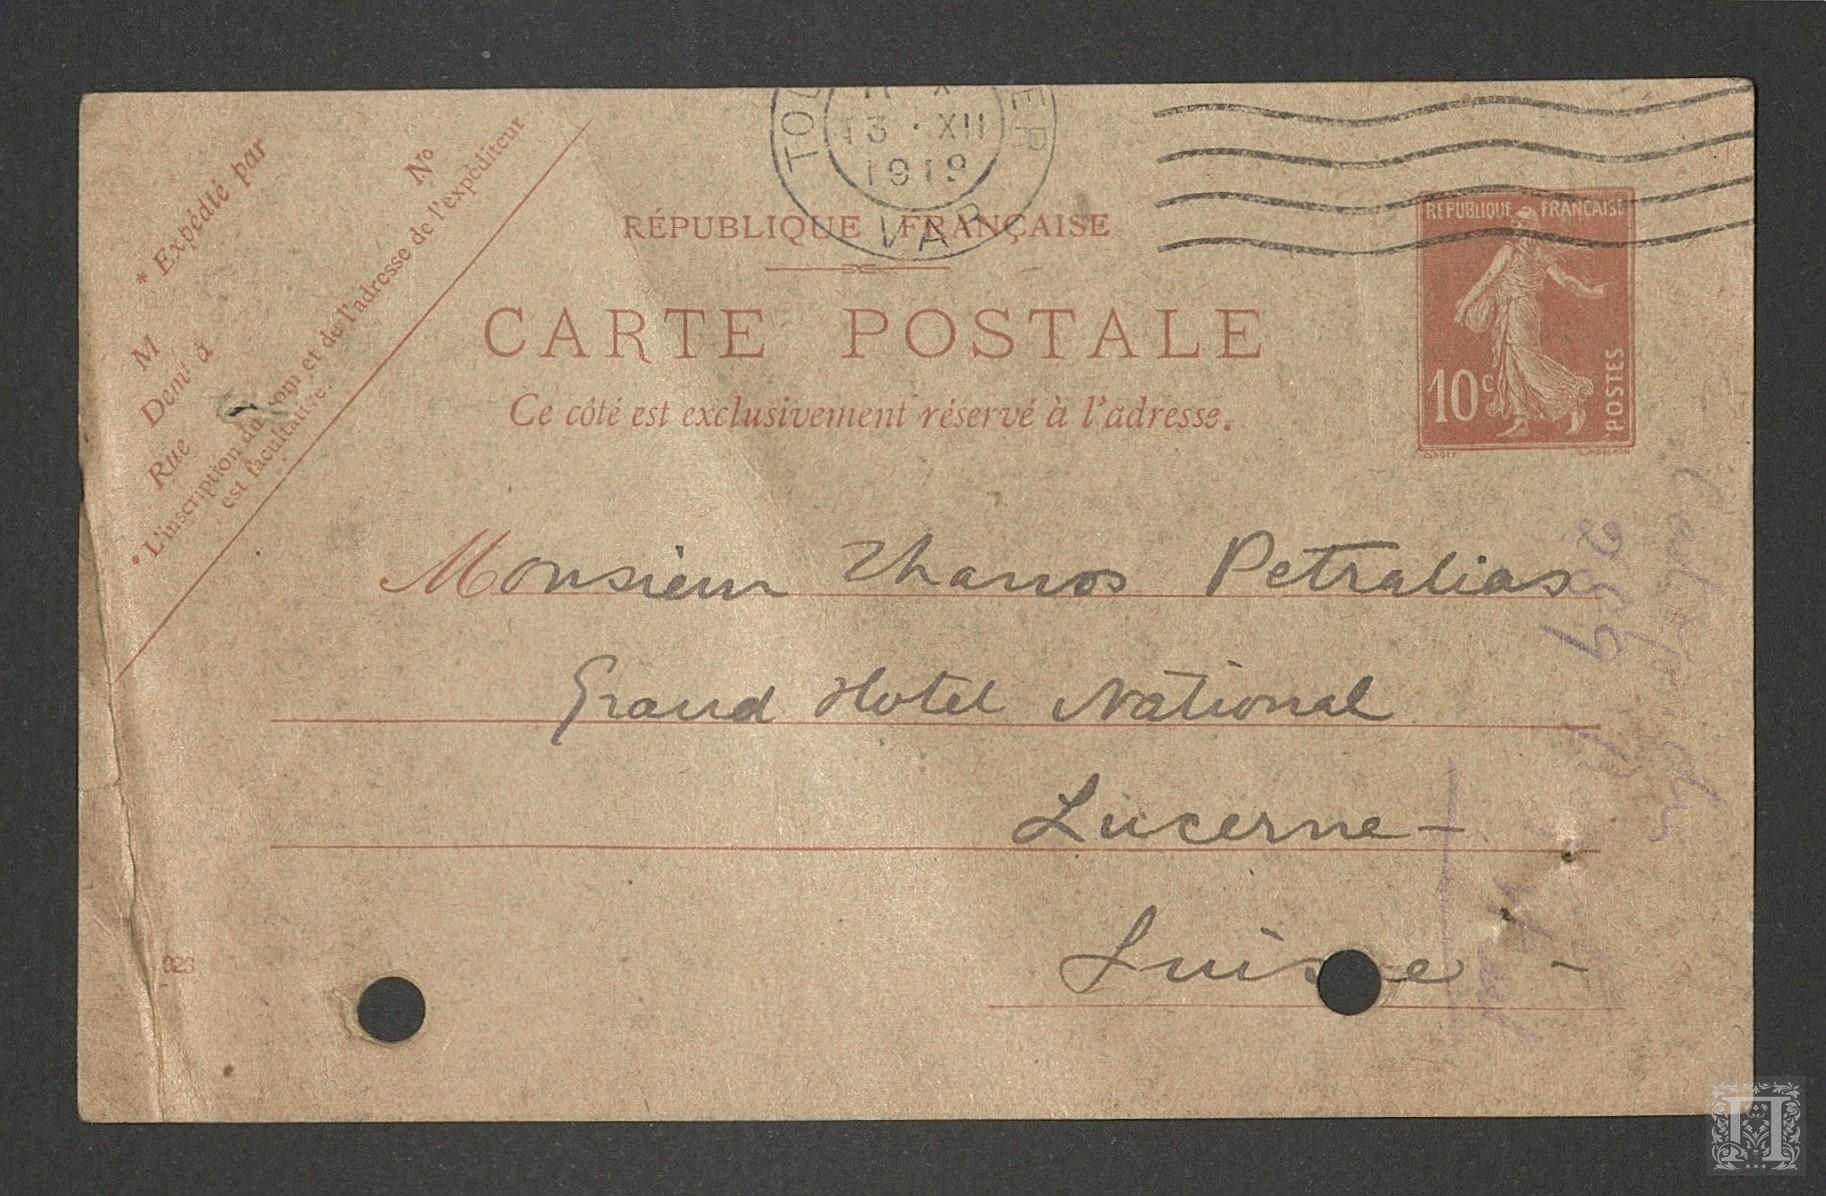 TOU ER
13 · XII
1919
VAR
* Expédié par
M
Demt à
Rue
No
* L'inscription du nom et de l'adresse de l'expéditeur
est facultative.
RÉPUBLIQUE FRANÇAISE
CARTE POSTALE
Ce côté est exclusivement réservé à l'adresse.
REPUBLIQUE FRANÇAISE
10c
POSTES
Monsieur Thanos Petralias
Grand Hotel National
Lucerne –
Suisse –
259
Π